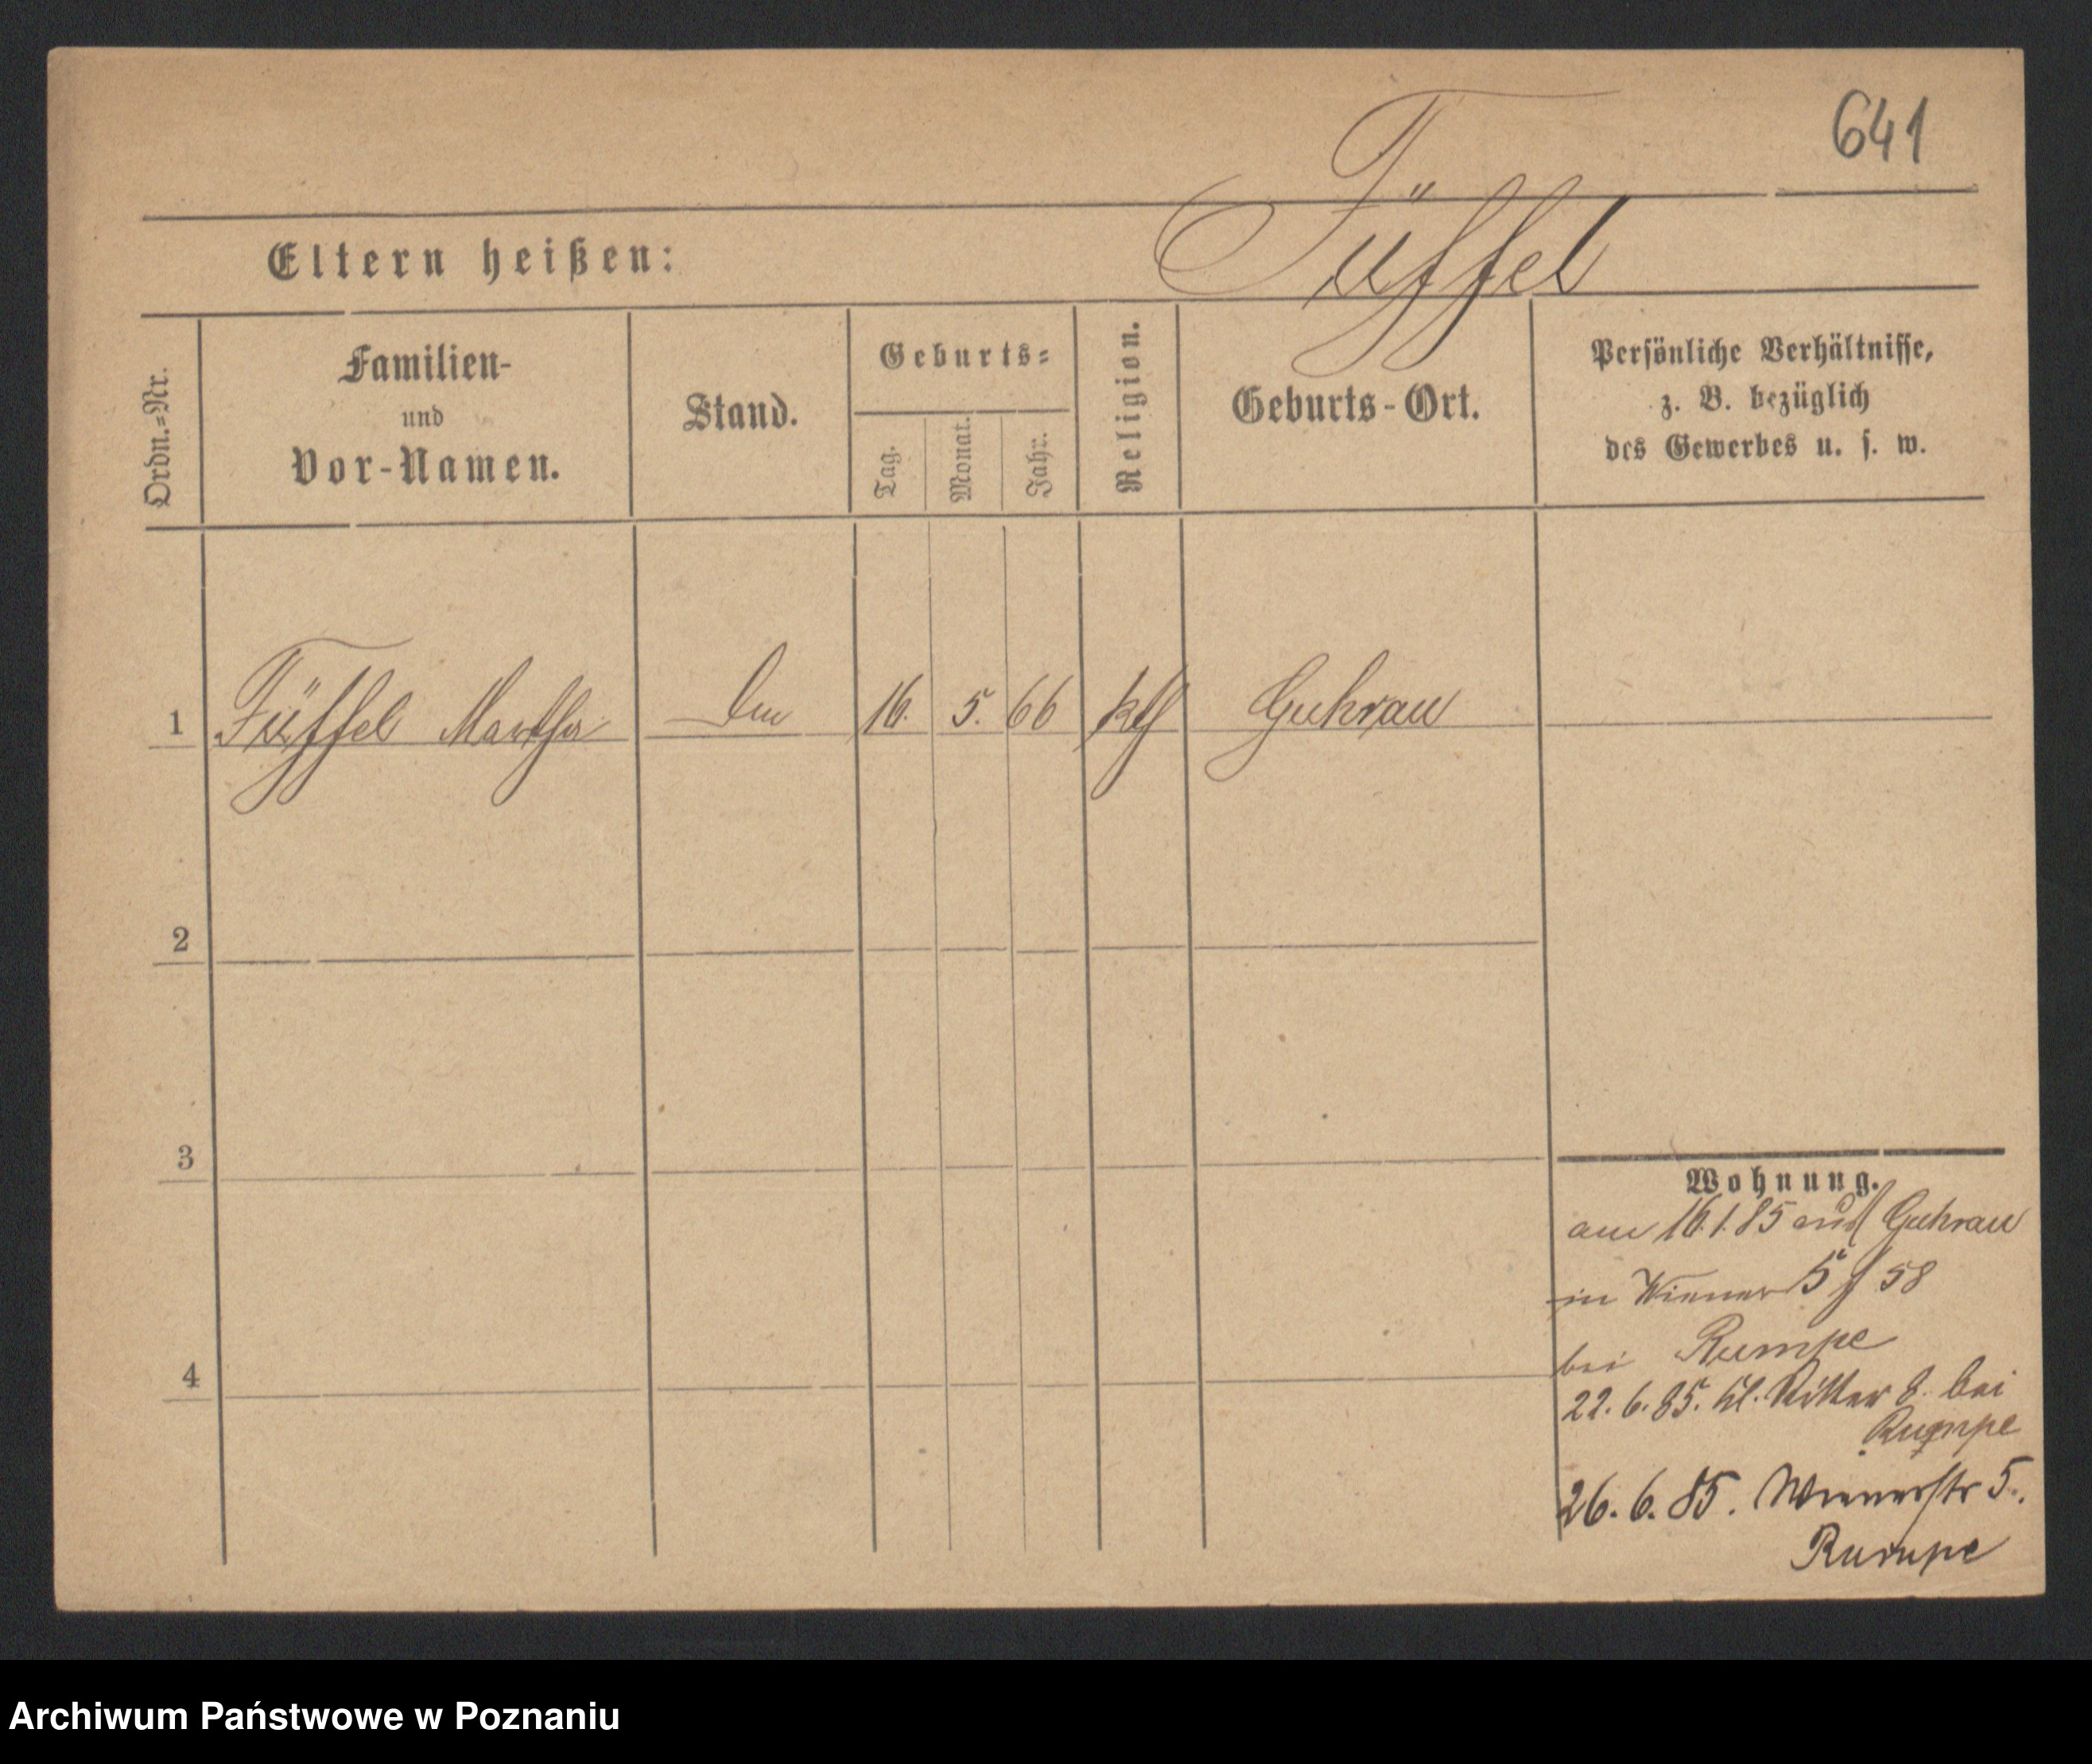 641
Eltern heißen: Füffel
Ordn.=Nr.
Familien-
und
Vor-Namen.
Stand.
Geburts=
Tag.
Monat.
Jahr.
Religion.
Geburts-Ort.
Persönliche Verhältnisse,
z. B. bezüglich
des Gewerbes u. s. w.
1 Füffel Martha 16. 5. 66 kth Guhrau
2
3
4
Wohnung.
am 16.1.85 aus Guhrau
in Wiener 5 58
bei Rumpe
22. 6. 85. Kl. Ritter 8. bei
Rumpe
26. 6. 85. Wienerstr 5.
Rumpe
Archiwum Państwowe w Poznaniu